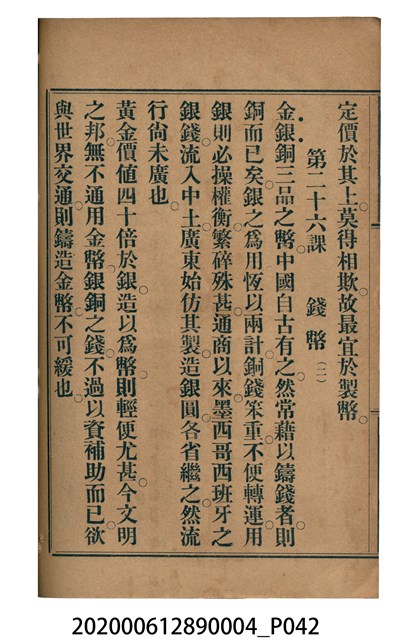 定價於其上莫得相欺故最宜於製幣。
第二十六課　錢幣（二）
金銀銅三品之幣中國自古有之然常藉以鑄錢者則
銅而已矣。銀之爲用恆以兩計。銅錢笨重不便轉運。用
銀則必操權衡。繁碎殊甚。通商以來。墨西哥西班牙之
銀錢流入中土。廣東始仿其製造銀圓。各省繼之。然流
行尚未廣也。
黃金價値四十倍於銀。造以爲幣則輕便尤甚。今文明
之邦無不通用金幣。銀銅之錢不過以資補助而已。欲
與世界交通。則鑄造金幣不可緩也。
202000612890004_P042